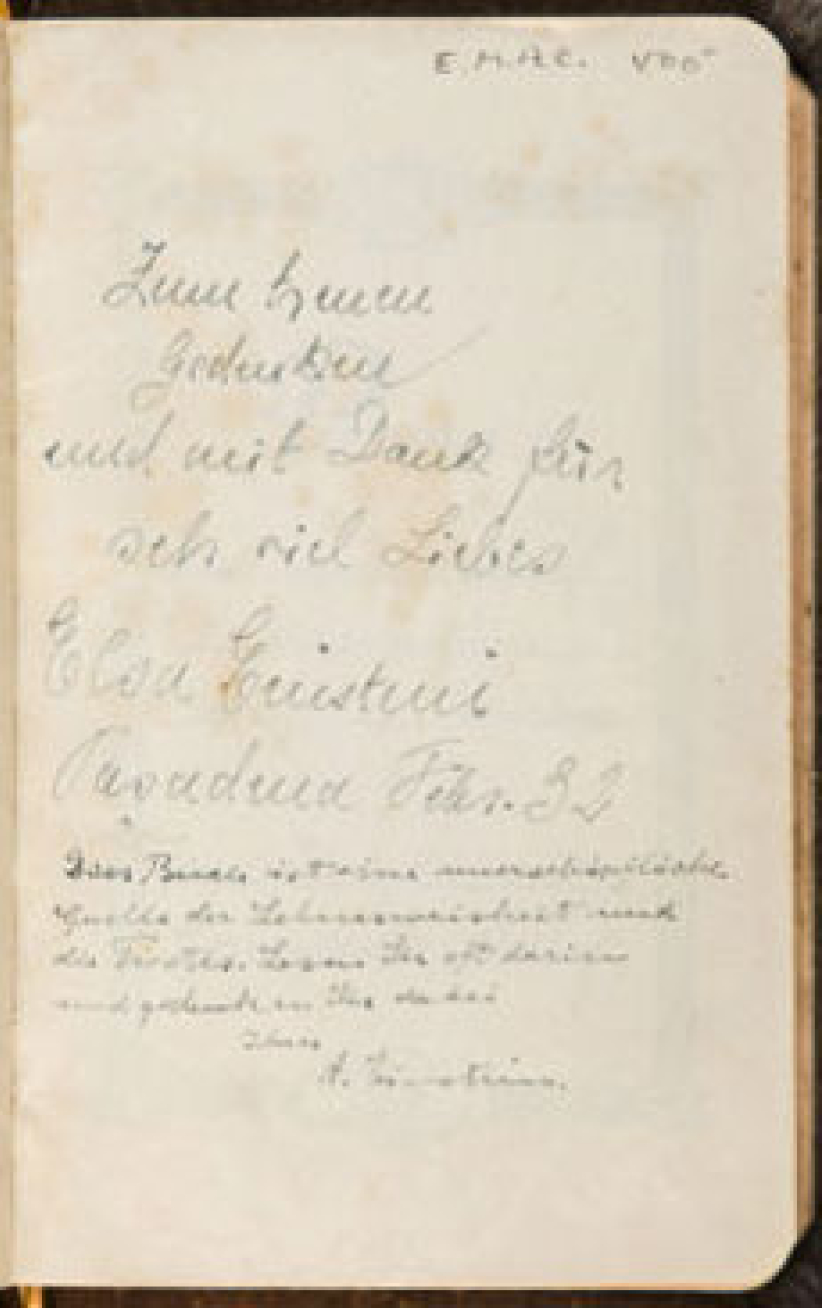 Zum treuen
Gedenken
und mit Dank für
seh viel Liebes
Elsa Einstein
Pasadena Febr. 32
Dies Buch ist eine unerschöpfliche
Quelle der Lebensweisheit und
des Trostes. Lesen Sie oft darin
und gedenken Sie dabei
Ihres
A. Einstein.